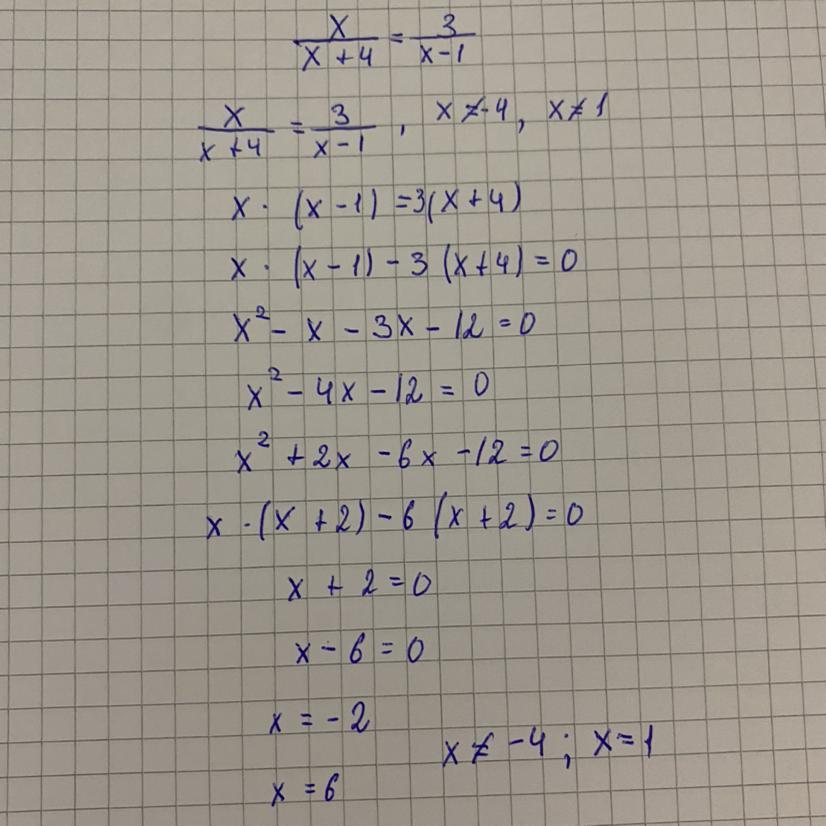 x/(x+4) = 3/(x-1)
x/(x+4) = 3/(x-1), x≠-4, x≠1
x · (x-1) = 3(x+4)
x · (x-1) - 3(x+4) = 0
x² - x - 3x - 12 = 0
x² - 4x - 12 = 0
x² + 2x - 6x - 12 = 0
x · (x+2) - 6(x+2) = 0
x + 2 = 0
x - 6 = 0
x = -2
x ≠ -4; x = 1
x = 6